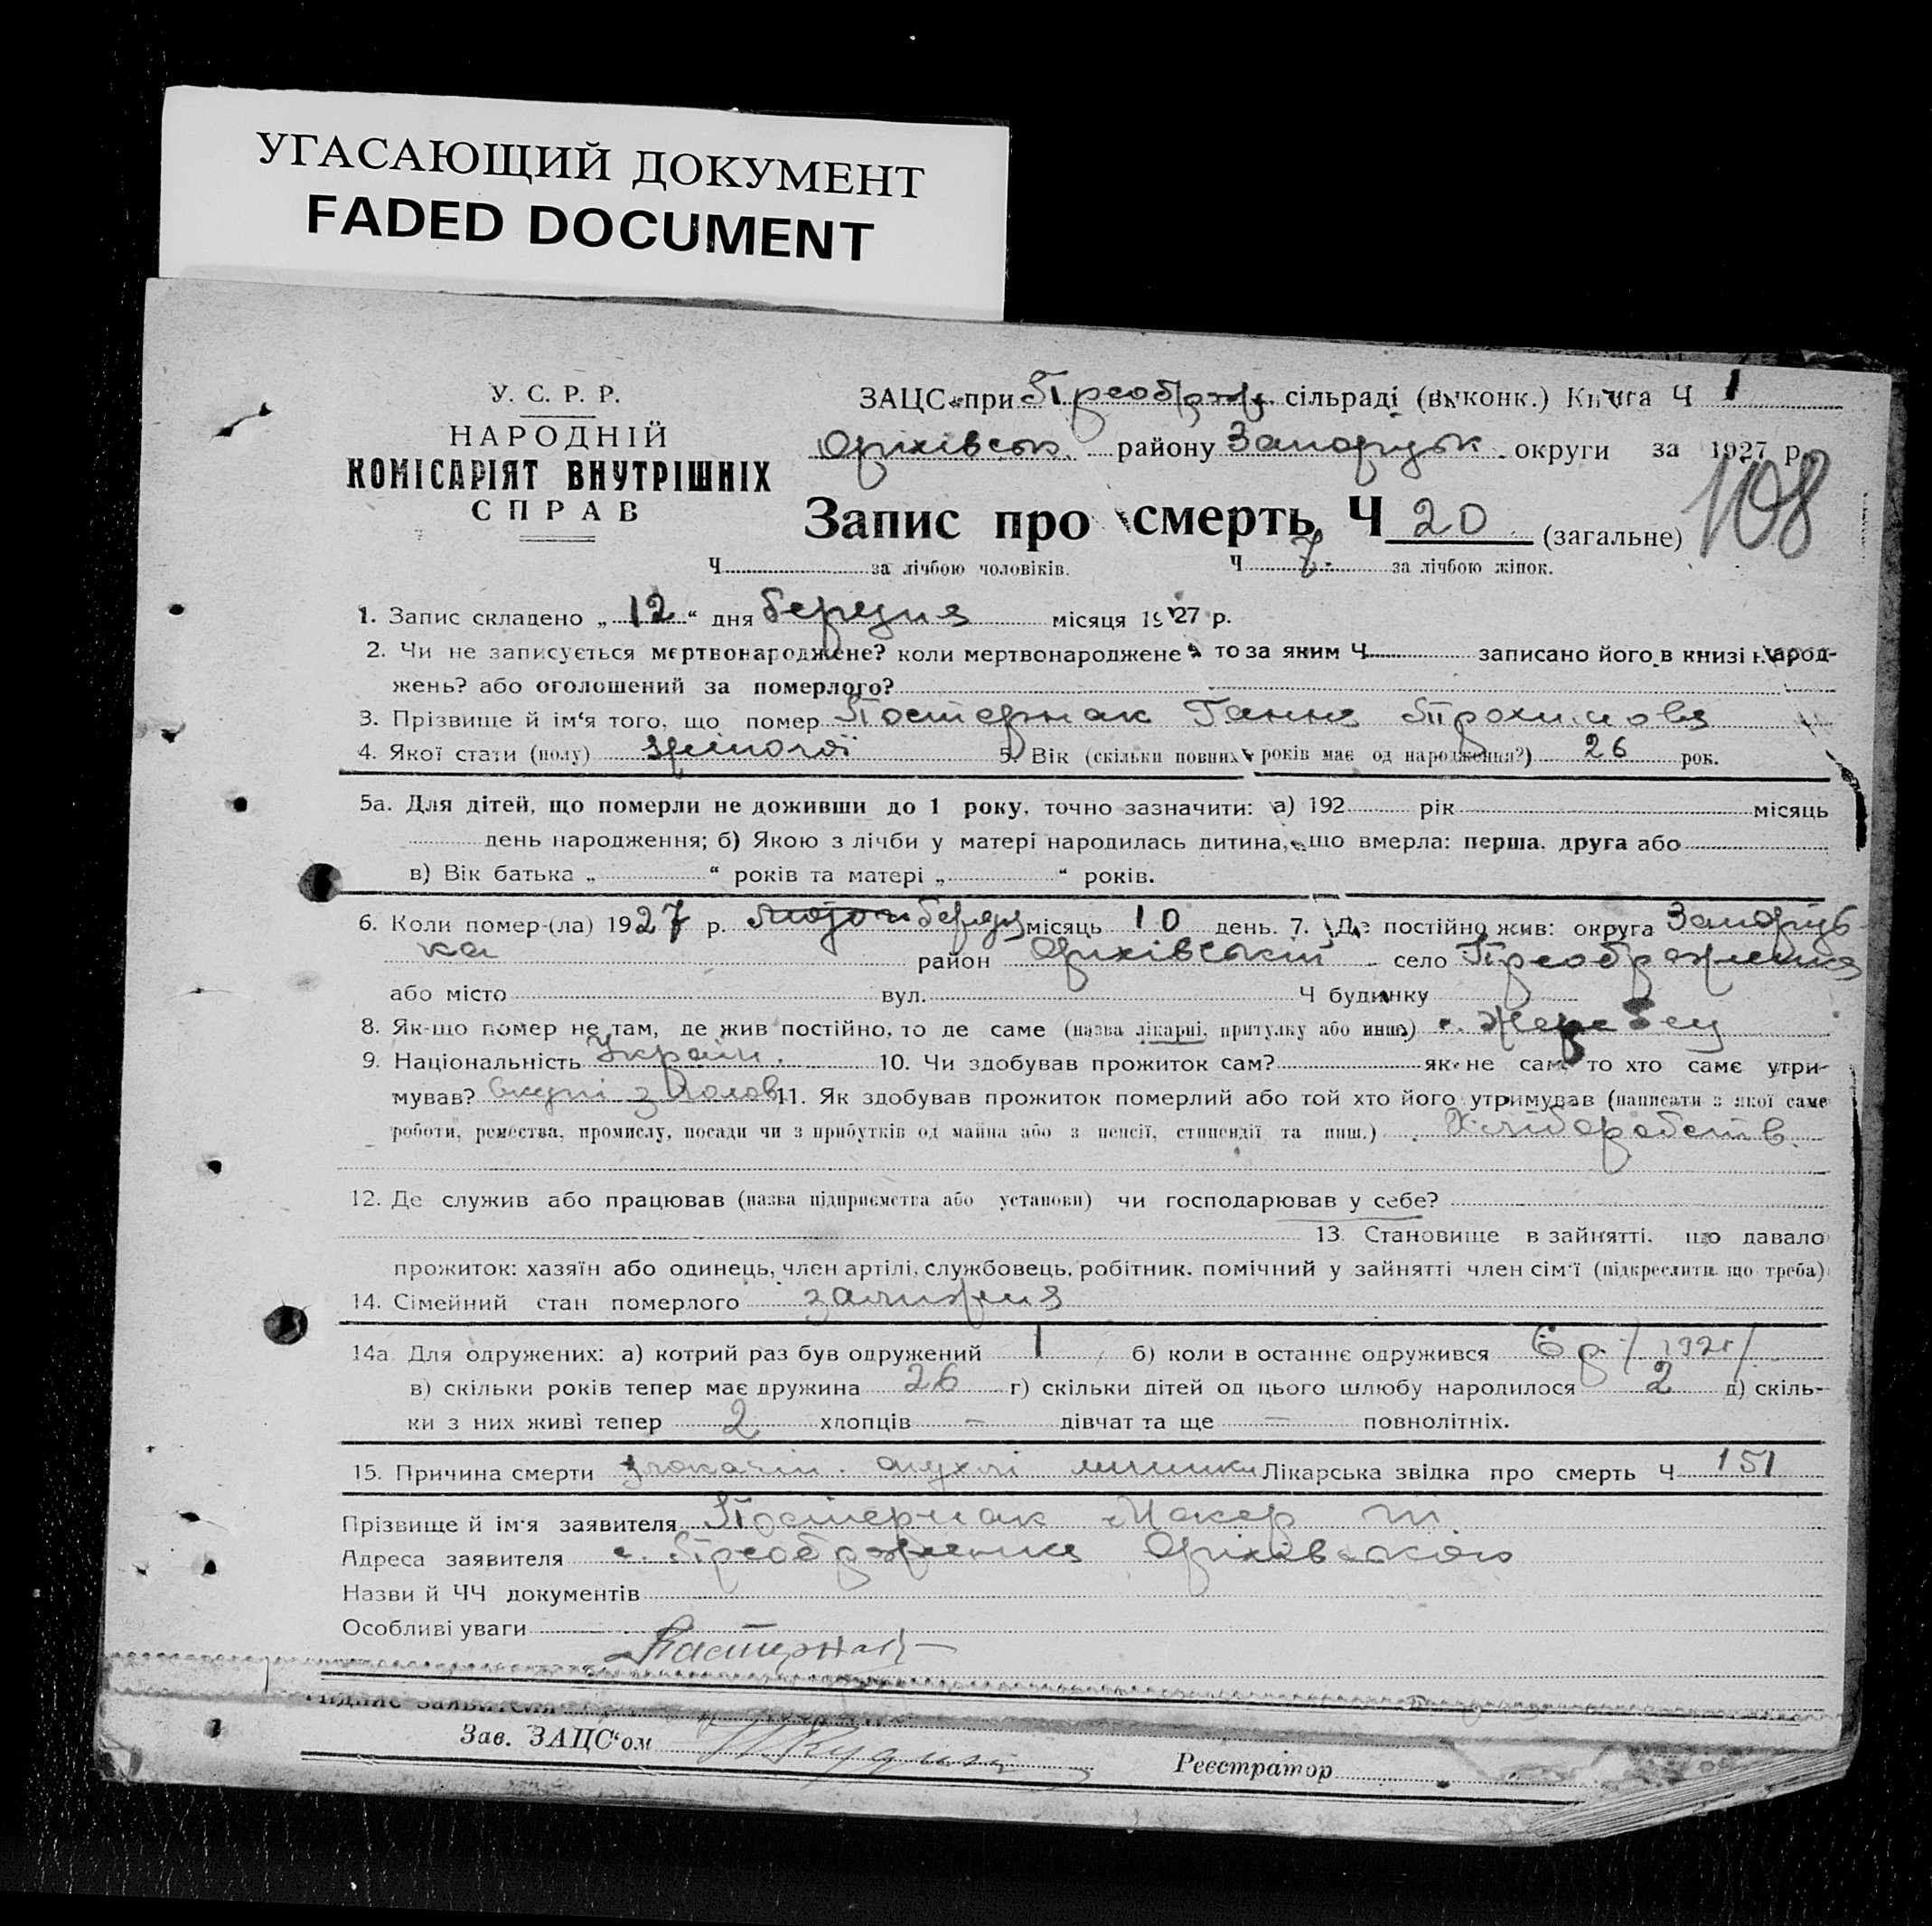 УГАСАЮЩИЙ ДОКУМЕНТ
FADED DOCUMENT
У. С. Р. Р.
НАРОДНІЙ
КОМІСАРІЯТ ВНУТРІШНІХ
СПРАВ
ЗАЦС при Преображ. сільраді (виконк.) Книга Ч 1
Оріхівськ. району Запорізьк. округи за 1927 р.
108
Запис про смерть Ч 20 (загальне)
Ч за лічбою чоловіків. Ч 7. за лічбою жінок.
1. Запис складено „ 12 “ дня березня місяця 1927 р.
2. Чи не записується мертвонароджене? коли мертвонароджене то за яким Ч записано його в книзі народ-
жень? або оголошений за померлого?
3. Прізвище й ім‘я того, що помер Постернак Ганна Трохимова
4. Якої стати (полу) жіночої 5. Вік (скільки повних років має од народження?) 26 рок.
5а. Для дітей, що померли не доживши до 1 року, точно зазначити: а) 192 рік місяць
день народження; б) Якою з лічби у матері народилась дитина, що вмерла: перша, друга або
в) Вік батька „ “ років та матері „ “ років.
6. Коли помер-(ла) 1927 р. березня місяць 10 день. 7. Де постійно жив: округа Запорізь-
ка район Оріхівський село Преображенка
або місто вул. Ч будинку
8. Як-що помер не там, де жив постійно, то де саме (назва лікарні, притулку або инш.) с. Жеребец
9. Національність Україн. 10. Чи здобував прожиток сам? як не сам то хто саме утри-
мував? вкупі з чолов. 11. Як здобував прожиток померлий або той хто його утримував (написати з якої саме
роботи, ремества, промислу, посади чи з прибутків од майна або з пенсії, стипендії та инш.) Хліборобств.
12. Де служив або працював (назва підприємства або установи) чи господарював у себе?
13. Становище в зайнятті, що давало
прожиток: хазяїн або одинець, член артілі, службовець, робітник, помічний у зайнятті член сім‘ї (підкреслити що треба)
14. Сімейний стан померлого заміжня
14а. Для одружених: а) котрий раз був одружений 1 б) коли в останнє одружився 6 р. /1921/
в) скільки років тепер має дружина 26 г) скільки дітей од цього шлюбу народилося 2 д) скіль-
ки з них живі тепер 2 хлопців — дівчат та ще — повнолітніх.
15. Причина смерти злокачін. опухлі Лікарська звідка про смерть Ч 151
Прізвище й ім‘я заявителя Постернак Макар
Адреса заявителя с. Преображенка Оріхівського
Назви й ЧЧ документів
Особливі уваги
Пастернак
Підпис заявителя
Зав. ЗАЦС‘ом Реєстратор